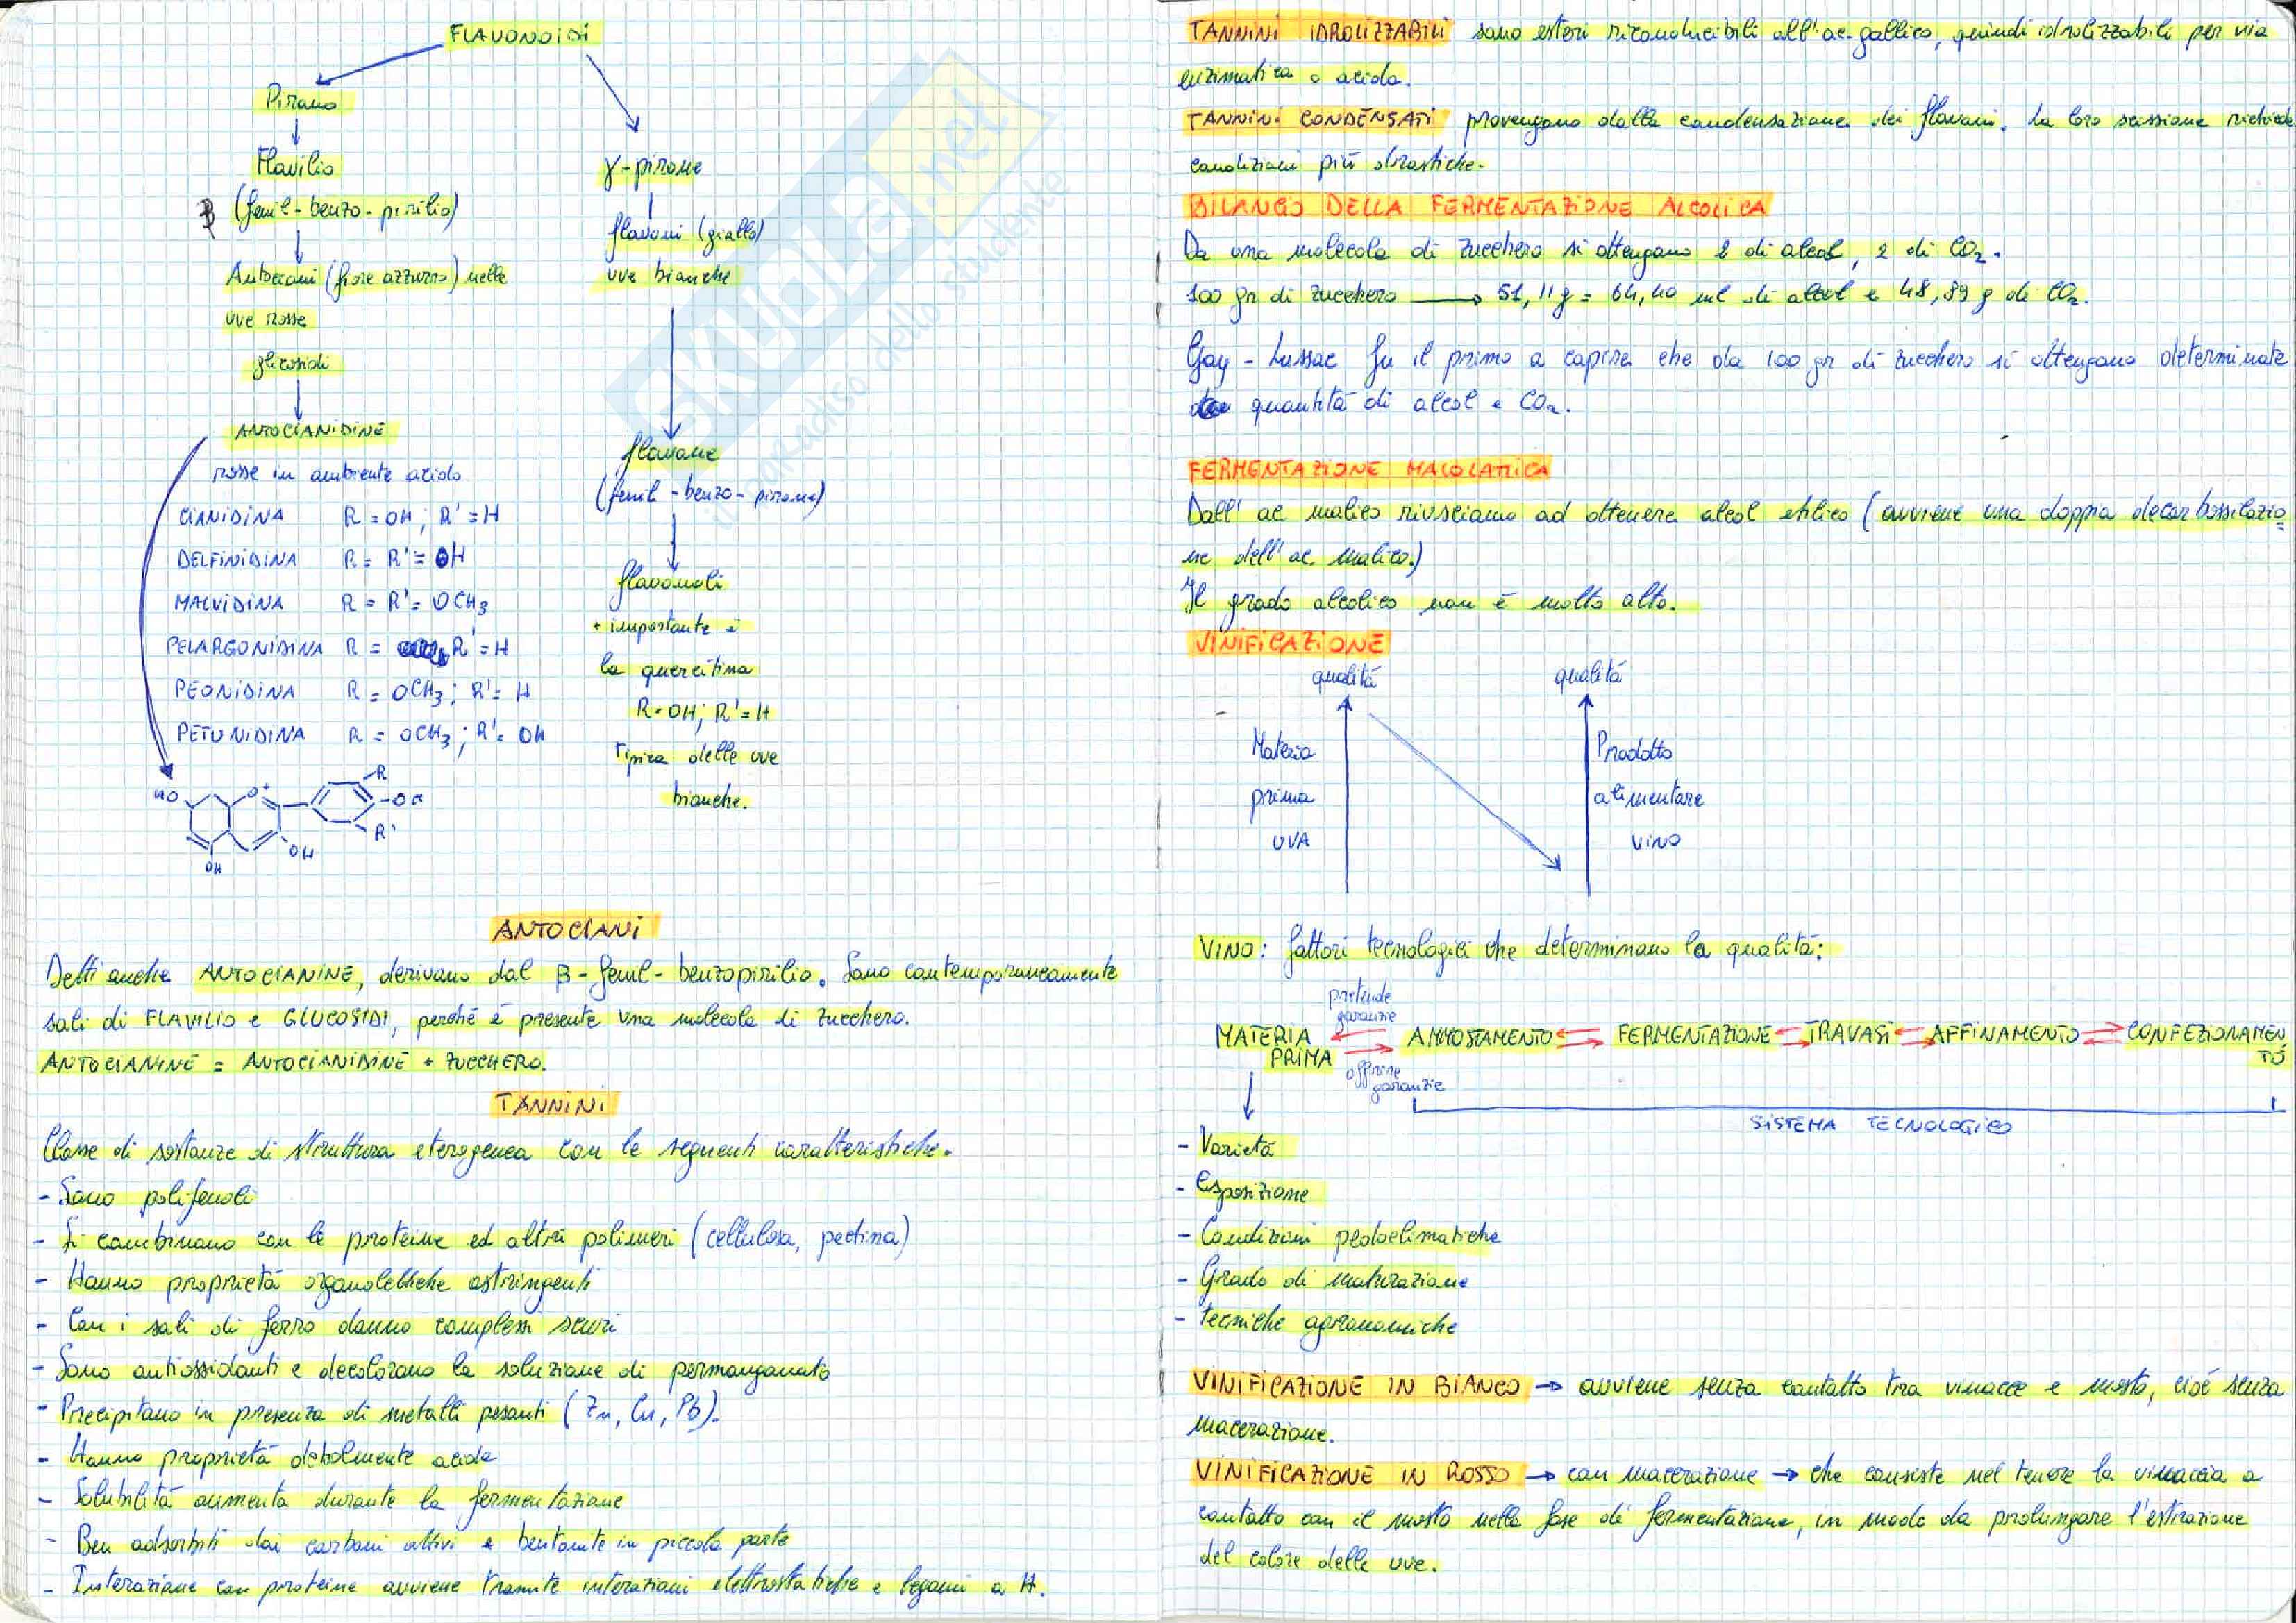 FLAVONOIDI
Pirano
Flavilio
(fenil-benzo-pirilio)
Antociani (fiore azzurro) nelle
uve rosse
glicosidi
ANTOCIANIDINE
rosse in ambiente acido
CIANIDINA R = OH; R' = H
DELFINIDINA R = R' = OH
MALVIDINA R = R' = OCH3
PELARGONIDINA R = R' = H
PEONIDINA R = OCH3; R' = H
PETUNIDINA R = OCH3; R' = OH
HO O+ R
OH
R'
OH
OH
γ-pirone
flavoni (giallo)
uve bianche
flavone
(fenil-benzo-pirone)
flavonoli
+ importante è
la quercitina
R=OH; R'=H
Tipica delle uve
bianche.
SKUOLA.net
il paradiso dello studente
ANTOCIANI
Detti anche ANTOCIANINE, derivano dal β-fenil-benzopirilio. Sono contemporaneamente
sali di FLAVILIO e GLUCOSIDI, perché è presente una molecola di zucchero.
ANTOCIANINE = ANTOCIANIDINE + ZUCCHERO.
TANNINI
Classe di sostanze di struttura eterogenea con le seguenti caratteristiche.
- Sono polifenoli
- Si combinano con le proteine ed altri polimeri (cellulosa, pectina)
- Hanno proprietà organolettiche astringenti
- Con i sali di ferro danno complessi scuri
- Sono antiossidanti e decolorano la soluzione di permanganato
- Precipitano in presenza di metalli pesanti (Zn, Cu, Pb).
- Hanno proprietà debolmente acide
- Solubilità aumenta durante la fermentazione
- Ben adsorbiti dai carboni attivi e bentonite in piccola parte
- Interazione con proteine avviene tramite interazioni elettrostatiche e legami a H.
TANNINI IDROLIZZABILI sono esteri riconducibili all'ac. gallico, quindi idrolizzabili per via
enzimatica o acida.
TANNINI CONDENSATI provengono dalla condensazione dei flavani. La loro scissione richiede
condizioni più drastiche.
BILANCIO DELLA FERMENTAZIONE ALCOLICA
Da una molecola di zucchero si ottengono 2 di alcol, 2 di CO2.
100 gr di zucchero → 51,11 g = 64,40 ml di alcol e 48,89 g di CO2.
Gay-Lussac fu il primo a capire che da 100 gr di zucchero si ottengono determinate
quantità di alcol e CO2.
FERMENTAZIONE MALOLATTICA
Dall' ac malico riusciamo ad ottenere alcol etilico (avviene una doppia decarbossilazio
ne dell' ac. malico.)
Il grado alcolico non è molto alto.
VINIFICAZIONE
qualità qualità
Materia Prodotto
prima alimentare
UVA VINO
VINO: fattori tecnologici che determinano la qualità:
pretende
garanzie
MATERIA AMMOSTAMENTO FERMENTAZIONE TRAVASI AFFINAMENTO CONFEZIONAMEN
PRIMA TO
offrire
garanzie
SISTEMA TECNOLOGICO
- Varietà
- Esposizione
- Condizioni pedoclimatiche
- Grado di maturazione
- tecniche agronomiche
VINIFICAZIONE IN BIANCO → avviene senza contatto tra vinacce e mosto, cioè senza
macerazione.
VINIFICAZIONE IN ROSSO → con macerazione → che consiste nel tenere la vinaccia a
contatto con il mosto nella fase di fermentazione, in modo da prolungare l'estrazione
del colore delle uve.